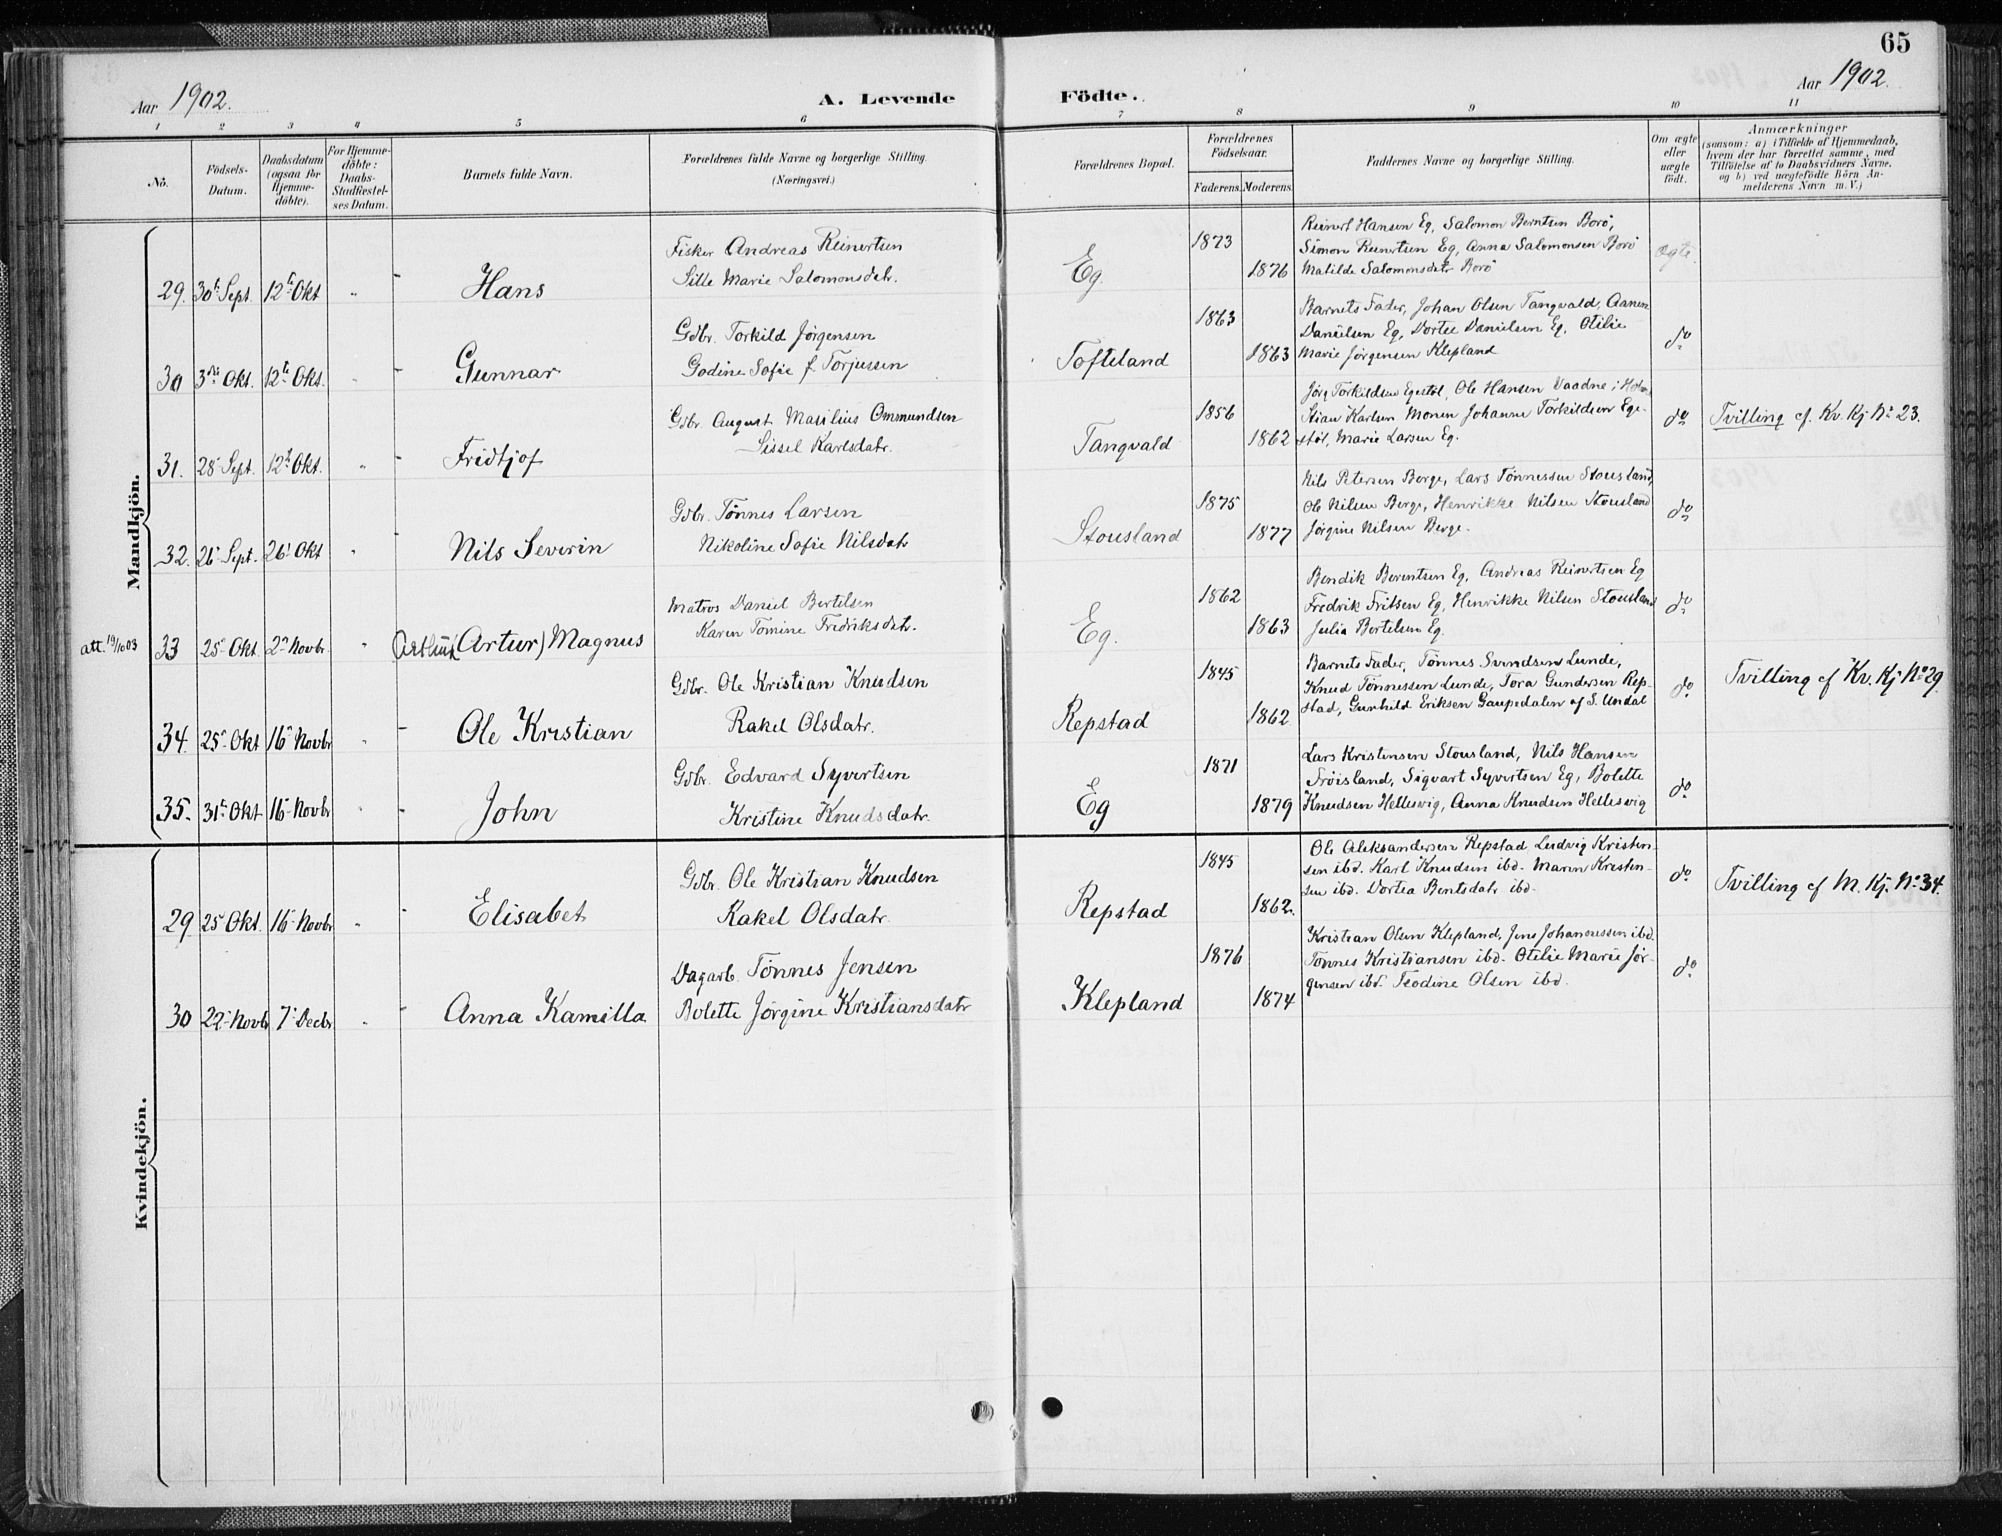 65
Aar 1902.
A. Levende Födte.
Aar 1902.
1 2 3 4 5 6 7 8 9 10 11
No.
Födsels-Datum.
Daabsdatum (ogsaa for Hjemme-döbte).
For Hjemme-döbte: Daabs-Stadfæstel-ses Datum.
Barnets fulde Navn.
Forældrenes fulde Navne og borgerlige Stilling.
(Næringsvei.)
Forældrenes Bopæl.
Forældrenes Födselsaar.
Faderens. Moderens.
Faddernes Navne og borgerlige Stilling.
Om ægte eller uægte födt.
Anmærkninger
(saasom: a) i Tilfælde af Hjemmedaab,
hvem der har forrettet samme, med
Tilföielse af to Daabsvidners Navne,
og b) ved uægtefödte Börn An-
melderens Navn m. V.)
Mandkjön.
Fisker Andreas Reinertsen
Sille Marie Salomonsdatr.
29. 30t Sept. 12te Okt " - Hans
Eg. 1873 1876
Reinert Hansen Eg, Salomon Berntsen Borö,
Simon Reinertsen Eg, Anna Salomonsen Borö
Matilde Salomonsdatr Borö
ægte.
Gdbr. Torkild Jörgensen
Godine Sofie f. Torjussen
30 3die Okt. 12te Okt. " - Gunnar
Tofteland 1863 1863
Barnets Fader, Johan Olsen Tangvald, Aanen
Danielsen Eg, Dortee Danielsen Eg, Otilie
Marie Jörgensen Klepland
do
Gdbr. August Masilius Ommundsen
Sissel Karlsdatr.
31. 28 Sept. 12te Okt. " - Fridtjof
Tangvald 1856 1862
Jörg. Torkildsen Egestöl, Ole Hansen Vaadne i
Stian Karlsen Monen Johanne Torkildsen Ege-
stöl, Marie Larsen Eg.
do
Tvilling cf. Kv. Kj No 23.
Gdbr. Tönnes Larsen
Nikoline Sofie Nilsdatr
32. 26 Sept. 26 Okt " - Nils Severin
Stousland 1875 1877
Nils Petersen Berge, Lars Tönnessen Stousland,
Ole Nilsen Berge, Henrikke Nilsen Stousland
Jörgine Nilsen Berge.
do
Matros Daniel Bertelsen
Karen Tomine Fredriksdatr.
att. 19/10 03 33 25 Okt. 2 Novbr. " (Arthur Artur) Magnus
Eg. 1862 1863
Bendik Berentsen Eg, Andreas Reinertsen Eg
Fredrik Fritsen Eg, Henrikke Nilsen Stousland
Julia Bertelsen Eg.
do
Gdbr. Ole Kristian Knudsen
Rakel Olsdatr.
34. 25 Okt 16 Novbr " - Ole Kristian
Repstad 1845 1862
Barnets Fader, Tönnes Svendsen Lunde,
Knud Tönnessen Lunde, Tora Gundersen Rep-
stad, Gunhild Eriksen Gaupedalen af S. Undal
do.
Tvilling cf Kv. Kj No 29.
Gdbr. Edvard Syvertsen
Kristine Knudsdatr.
35. 31te Okt 16 Novbr " - John
Eg 1871 1879
Lars Kristensen Stousland, Nils Hansen
Fröisland, Sigvart Syvertsen Eg, Bolette
Knudsen Hellesvig, Anna Knudsen Hellesvig
do.
Kvindekjön.
Gdbr. Ole Kristian Knudsen
Rakel Olsdatr.
29. 25 Okt. 16 Novbr " - Elisabet
Repstad 1845 1862.
Ole Aleksandersen Repstad, Ludvig Kristen-
sen ibd. Karl Knudsen ibd. Maren Kristen-
sen ibd. Dortea Bentsdatr ibd.
do.
Tvilling cf M. Kj. No 34.
Dagarb. Tönnes Jensen
Bolette Jörgine Kristiansdatr
30 22 Novbr 7 Decbr " - Anna Kamilla
Klepland 1876 1874
Kristian Olsen Klepland, Jens Johannessen ibd.
Tönnes Kristiansen ibd. Otilie Marie Jör-
gensen ibd. Teodine Olsen ibd.
do